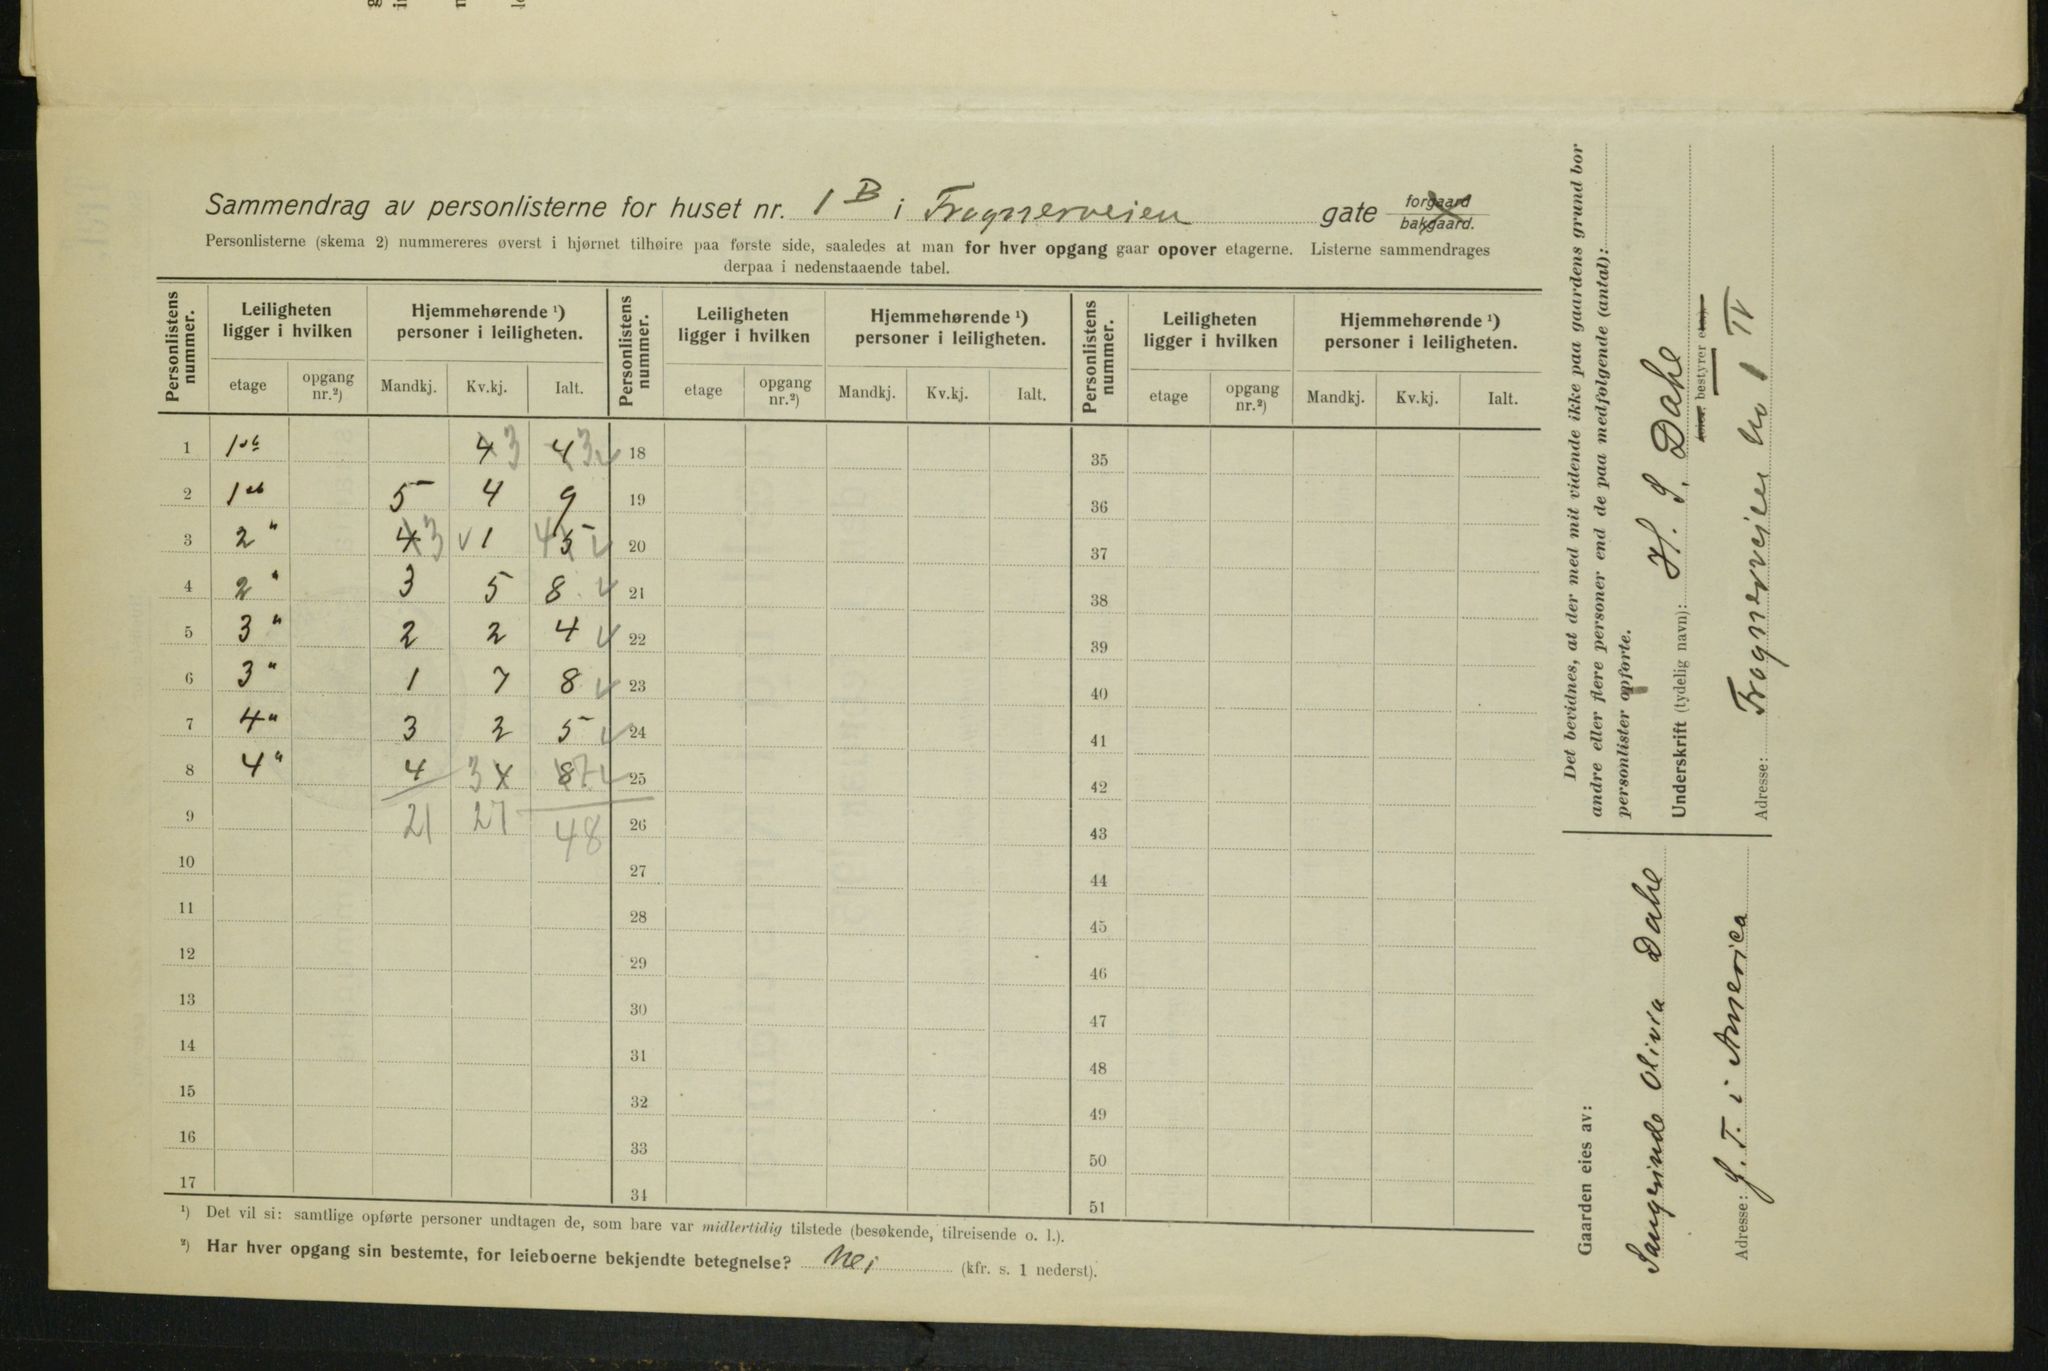 Sammendrag av personlisterne for huset nr. 1 B i Frognerveien gate forgaard bakgaard.
Personlisterne (skema 2) nummereres øverst i hjørnet tilhøire paa første side, saaledes at man for hver opgang gaar opover etagerne. Listerne sammendrages
derpaa i nedenstaaende tabel.
Personlistens nummer. Leiligheten ligger i hvilken Hjemmehørende ¹) personer i leiligheten. Personlistens nummer. Leiligheten ligger i hvilken Hjemmehørende ¹) personer i leiligheten. Personlistens nummer. Leiligheten ligger i hvilken Hjemmehørende ¹) personer i leiligheten.
etage opgang nr.²) Mandkj. Kv.kj. Ialt. etage opgang nr.²) Mandkj. Kv.kj. Ialt. etage opgang nr.²) Mandkj. Kv.kj. Ialt.
1 1ste 4 3 4 3 18 35
2 1ste 5 4 9 19 36
3 2 " 4 3 1 4 5 20 37
4 2 " 3 5 8 21 38
5 3 " 2 2 4 22 39
6 3 " 1 7 8 23 40
7 4 " 3 2 5 24 41
8 4 " 4 3 4 8 7 25 42
9 21 27 48 26 43
10 27 44
11 28 45
12 29 46
13 30 47
14 31 48
15 32 49
16 33 50
17 34 51
¹) Det vil si: samtlige opførte personer undtagen de, som bare var midlertidig tilstede (besøkende, tilreisende o. l.).
²) Har hver opgang sin bestemte, for leieboerne bekjendte betegnelse? Nei (kfr. s. 1 nederst).
Det bevidnes, at der med mit vidende ikke paa gaardens grund bor
andre eller flere personer end de paa medfølgende (antal):
personlister opførte.
Underskrift (tydelig navn): H. S. Dahl
bestyrer
Adresse: Frognerveien No 1 IV
Gaarden eies av:
Olivia Dahl
Adresse: G. T. i America